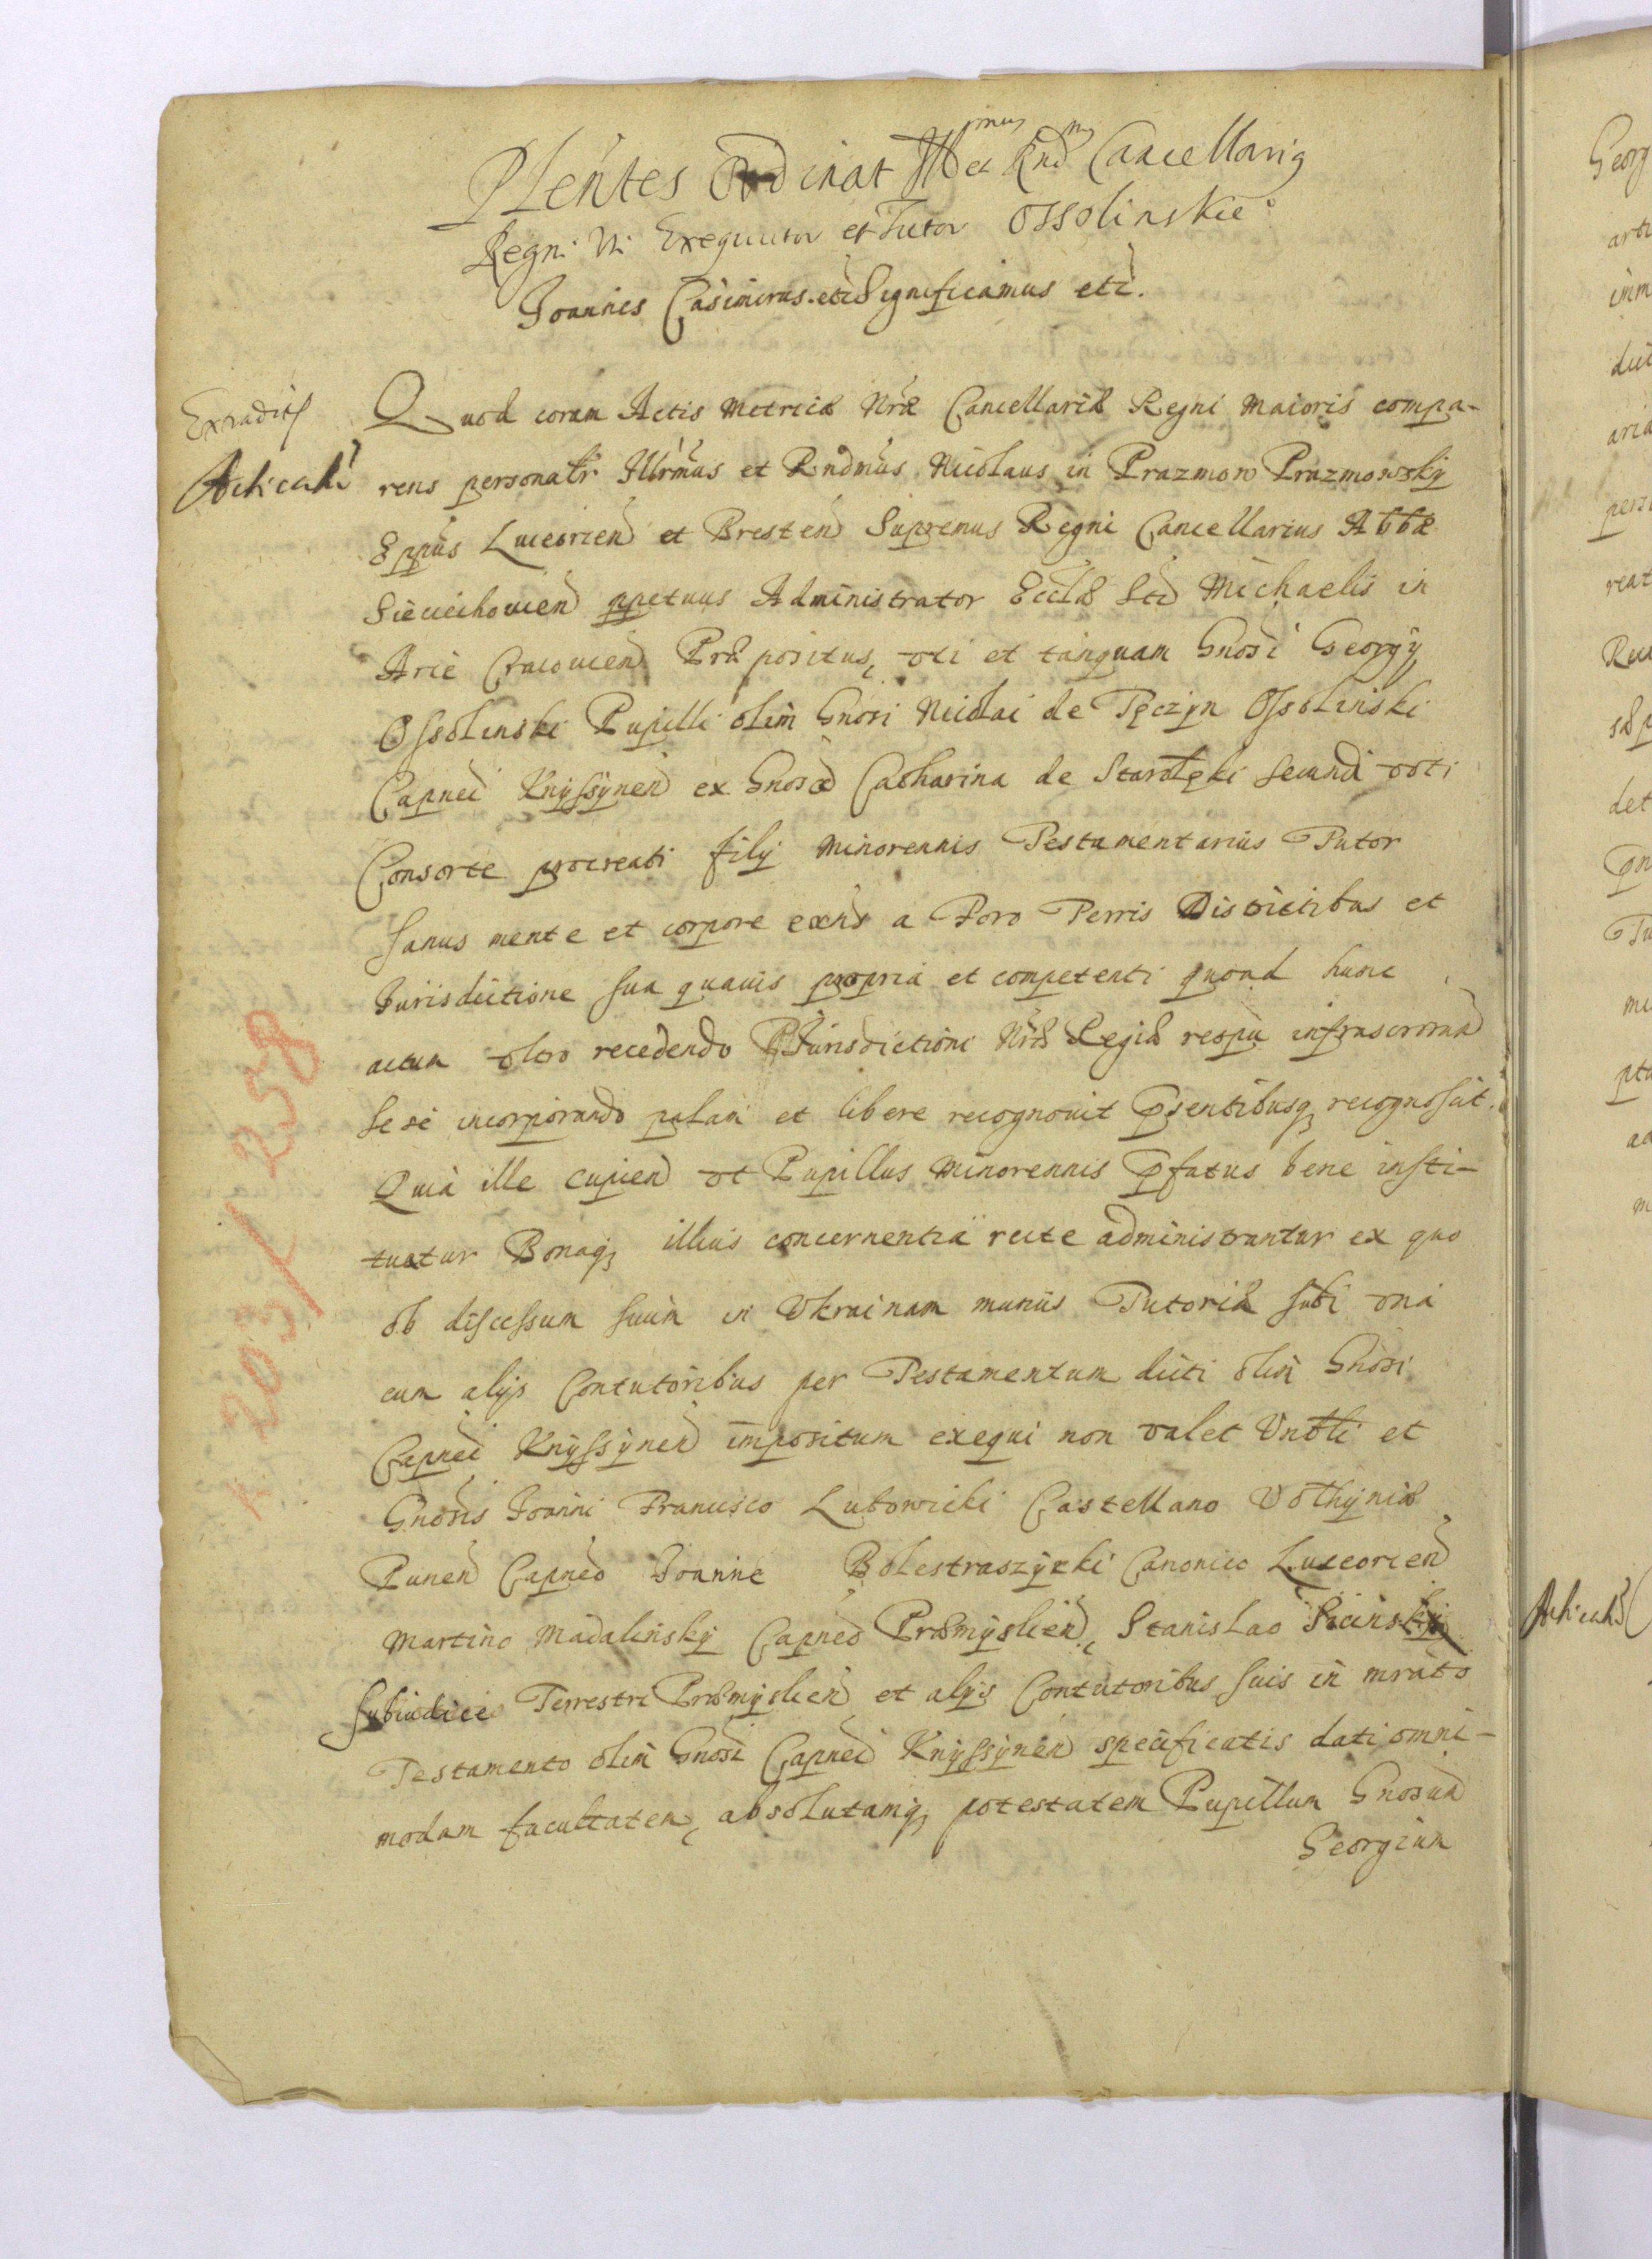 Plentes Ordinat Illmus et Rndmus Cancellariq
Regni Vti Exequutor et Tutor Ossolinskie
Joannes Casimirus etc Significamus etc.
Extradit
Acticati
Quod coram Actis Metricæ Nræ Cancellariæ Regni Maioris compa-
rens personalr Illrmus et Rndmus Nicolaus in Prazmow Prazmowsky
Eppus Luceorien et Bresten Supremus Regni Cancellarius Abbæ
Sieciechouien ppetuus Administrator Ecclæ Sti Michaelis in
Arce Cracouien Præpositus, vti et tanquam Gnosi Georgy
Ossolinski Pupilli olim Gnosi Nicolai de Tęczyn Ossolinski
Capnei Knyssynen ex Gnosa Catharina de Starołęki secundi voti
Consorte procreati filij minorennis Testamentarius Tutor
Sanus mente et corpore exns a Foro Terris Districtibus et
Jurisdictione sua quauis propria et competenti quoad hunc
actum vltro recedendo Jurisdictioni Nræ Regiæ respu infrascrorum
sese incorporando palam et libere recognouit Psentibusq recognoscit.
Quia ille cupien vt Pupillus minorennis Pfatus bene insti-
tuatur Bonaq illius concernentia recte administrantur ex quo
ob discessum suum in Vkrainam munus Tutoriæ sibi vna
cum alys Contutoribus per Testamentum dicti olim Gnosi
Capnei Knyssynen impositum exequi non valet Vnbli et
Gnosis Joanni Francisco Lubowicki Castellano Volhyniæ
Punen Capneo Joanne Bolestraszycki Canonico Luceorien
Martino Madalinsky Capneo Præmyslien, Stanislao Sicinsky
Subiudici Terrestri Præmyslien et alys Contutoribus suis in mrato
Testamento olim Gnosi Capnei Knyssynen specificatis dati omni-
modam facultatem, absolutamq potestatem Pupillum Gnosum
Georgium
k 203/258